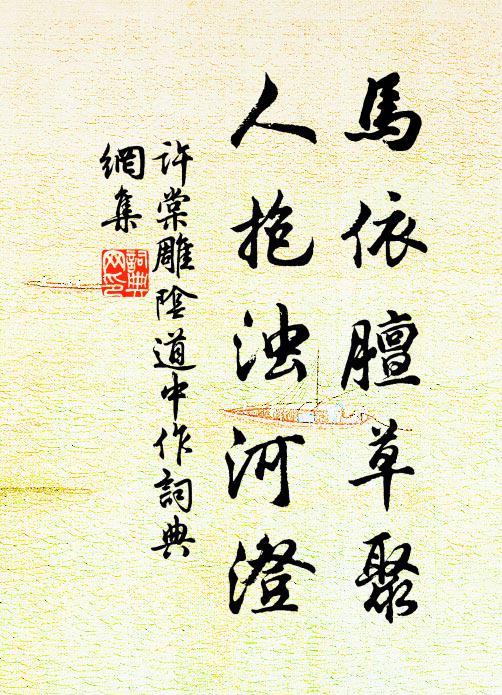 馬依膻草聚
人抱浊河澄
許棠雕陰道中作詞典
網集
詞典
网印